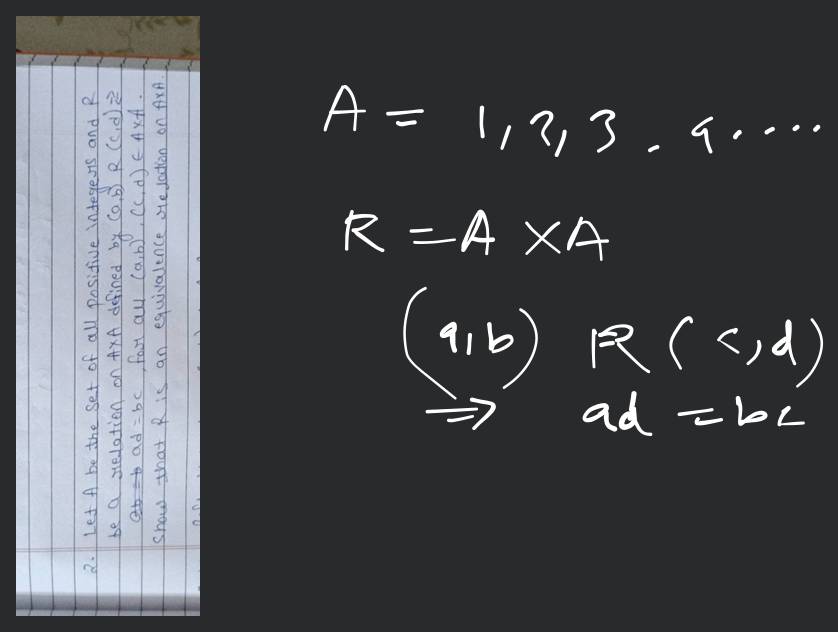 2. Let A be the set of all positive integers and R
be a relation on A×A defined by (a,b) R (c,d) ⇒
ad = bc , for all (a,b), (c,d) ∈ A×A.
Show that R is an equivalence relation on A×A.
A = 1, 2, 3 . 9 . . . .
R = A × A
(a, b) R (c, d)
⇒ ad = bc